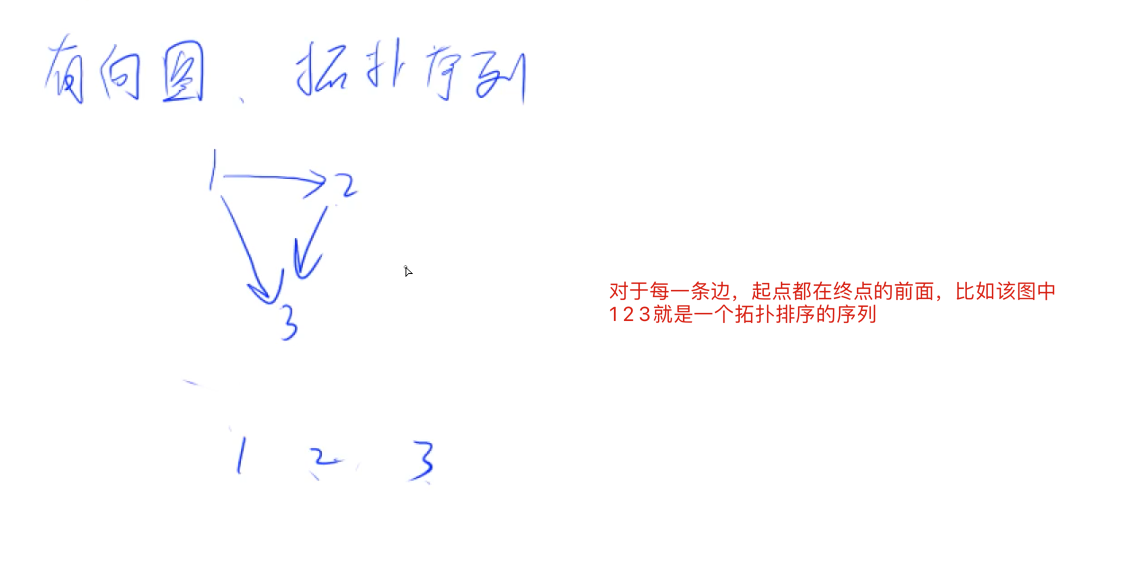 有向图、拓扑序列
1
2
3
对于每一条边，起点都在终点的前面，比如该图中
1 2 3就是一个拓扑排序的序列
1 2 3